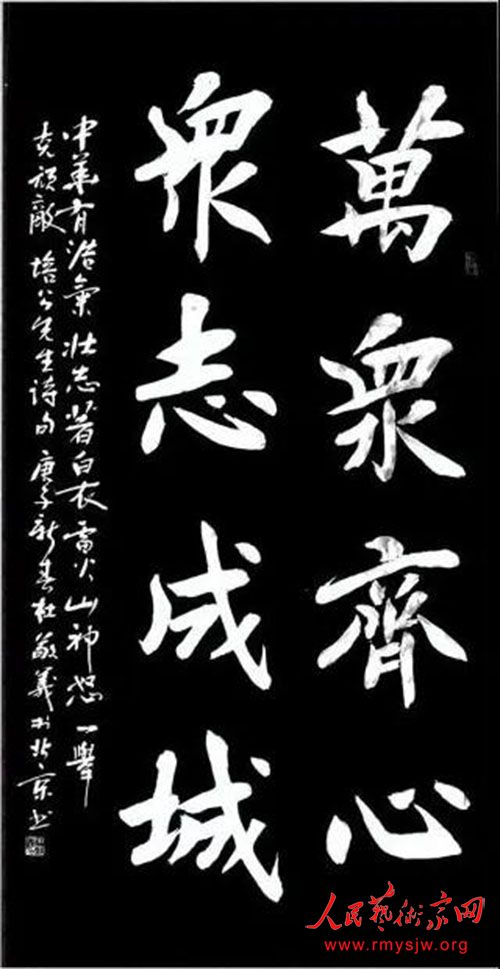 萬衆齊心
衆志成城
中華有浩氣 壯志著白衣 雷火山神怒 一舉
克頑敵 培公先生詩句 庚子新春杜敬義於北京书
人民藝術家网
www.rmysjw.org